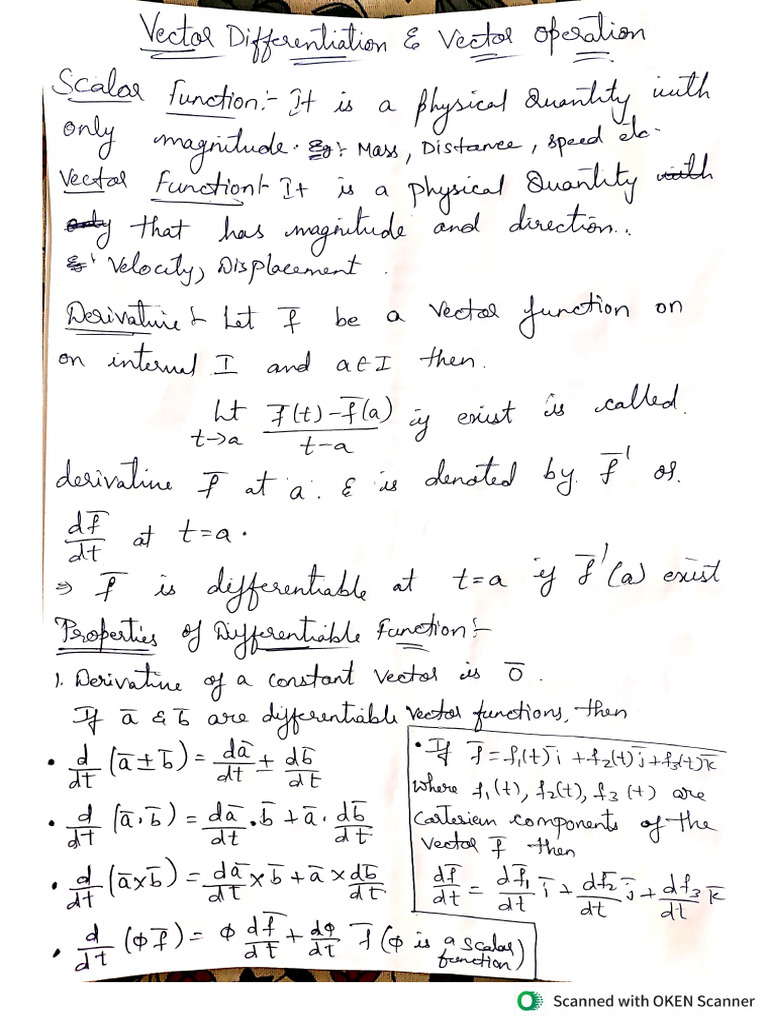 Vector Differentiation & Vector Operation
Scalar Function:- It is a physical Quantity with
only magnitude. Eg:- Mass, Distance, speed etc.
Vector Function:- It is a physical Quantity with
only that has magnitude and direction..
Eg:' Velocity, Displacement.
Derivative:- Let f̅ be a vector function on
on interval I and a∈I then.
Lt t→a (f̅(t) - f̅(a))/(t-a) if exist is called.
derivative f̅ at a. & is denoted by f̅' or.
df̅/dt at t=a.
⇒ f̅ is differentiable at t=a if f̅'(a) exist
Properties of Differentiable Function:-
1. Derivative of a constant vector is 0̅.
If a̅ & b̅ are differentiable vector functions, then
• d/dt (a̅ ± b̅) = da̅/dt ± db̅/dt
• d/dt (a̅ . b̅) = da̅/dt . b̅ + a̅ . db̅/dt
• d/dt (a̅ × b̅) = da̅/dt × b̅ + a̅ × db̅/dt
• d/dt (φ f̅) = φ df̅/dt + dφ/dt f̅ (φ is a scalar
function)
• If f̅ = f₁(t) i̅ + f₂(t) j̅ + f₃(t) k̅
where f₁(t), f₂(t), f₃(t) are
Cartesian components of the
vector f̅ then
df̅/dt = df̅₁/dt i̅ + df₂/dt j̅ + df₃/dt k̅
Scanned with OKEN Scanner